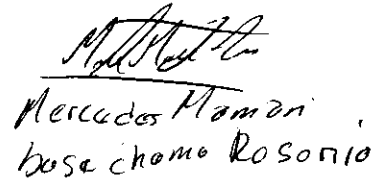 Mercedes Mamani
base chama Rosario